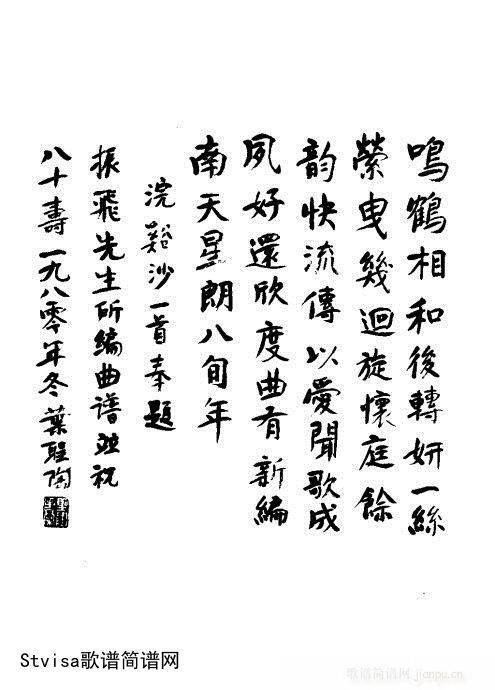 鳴鶴相和後轉妍一絲
縈曳幾迴旋懷庭餘
韵快流傳以愛聞歌成
夙好還欣度曲有新編
南天星朗八旬年
浣谿沙一首奉題
振飛先生所編曲譜並祝
八十壽一九八零年冬葉聖陶
Stvisa歌谱简谱网
歌谱简谱网 jianpu.cn